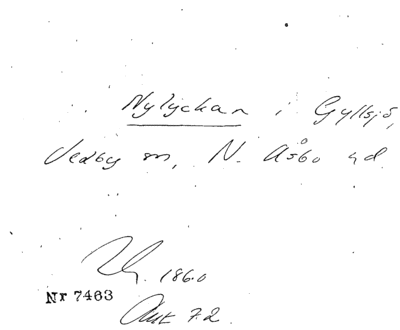 Nylyckan i Gyllsjö,
Vedby sn, N. Åsbo hd.
1860
Nr 7463
Ant 72